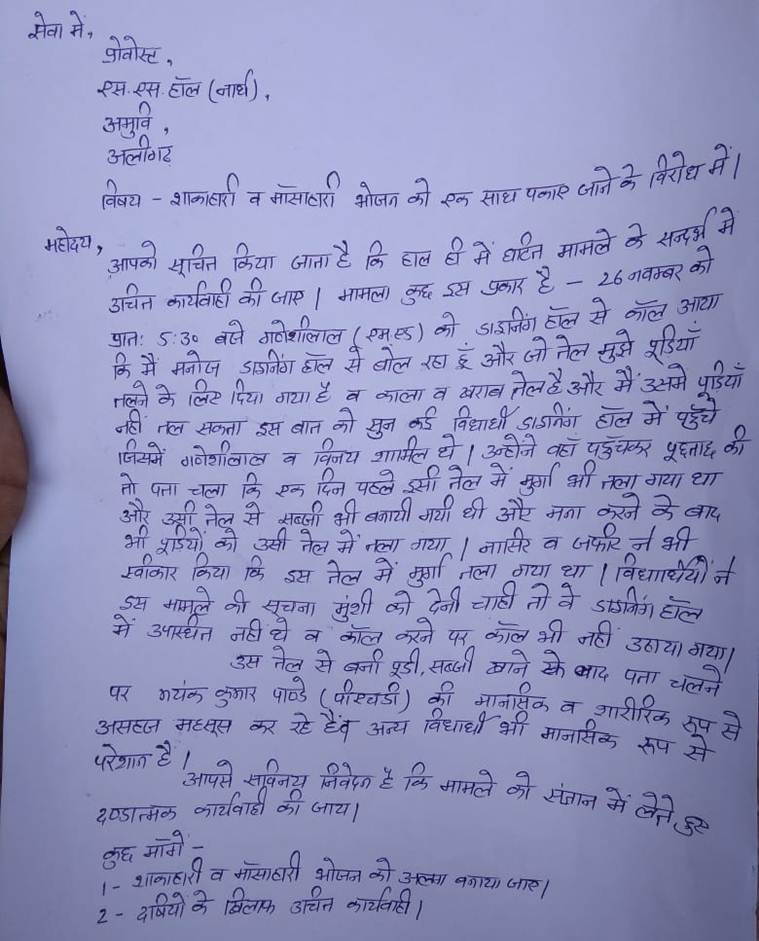 सेवा में,
प्रोवोस्ट,
एस.एस. हॉल (नार्थ),
अमुवि,
अलीगढ़
विषय - शाकाहारी व मॉसाहारी भोजन को एक साथ पकाए जाने के विरोध में।
महोदय,
आपको सूचित किया जाता है कि हाल ही में घटित मामले के सन्दर्भ में
उचित कार्यवाही की जाए। मामला कुछ इस प्रकार है - 26 नवम्बर को
प्रात: 5:30 बजे गणेशीलाल (एम.एड) को डाइनिंग हॉल से कॉल आया
कि मैं मनोज डाइनिंग हॉल से बोल रहा हूँ और जो तेल मुझे पूडियाँ
तलने के लिए दिया गया है व काला व खराब तेल है और मैं उसमे पूडियाँ
नहीं तल सकता इस बात को सुन कई विधार्थी डाइनिंग हॉल में पहुँचे
जिसमें गणेशीलाल व विनय शामिल थे। उन्होने वहाँ पहुँचकर पूछताछ की
तो पता चला कि एक दिन पहले इसी तेल में मुर्गा भी तला गया था
और उसी तेल से सब्जी भी बनायी गयी थी और मना करने के बाद
भी पूडियों को उसी तेल में तला गया। नासिर व जफीर ने भी
स्वीकार किया कि इस तेल में मुर्गा तला गया था। विधार्थियों ने
इस मामले की सूचना मुंशी को देनी चाही तो वे डाइनिंग हॉल
में उपस्थित नहीं थे व कॉल करने पर कॉल भी नहीं उठाया गया।
उस तेल से बनी पूडी, सब्जी खाने के बाद पता चलने
पर मयंक कुमार पाण्डे (पीएचडी) की मानसिक व शारीरिक रूप से
असहज महसूस कर रहे हैं व अन्य विधार्थी भी मानसिक रूप से
परेशान है।
आपसे सविनय निवेदन है कि मामले को संज्ञान में लेते हुए
दण्डात्मक कार्यवाही की जाय।
कुछ माँगें -
1 - शाकाहारी व मॉसाहारी भोजन को अलग बनाया जाए।
2 - दोषियों के खिलाफ उचित कार्यवाही।